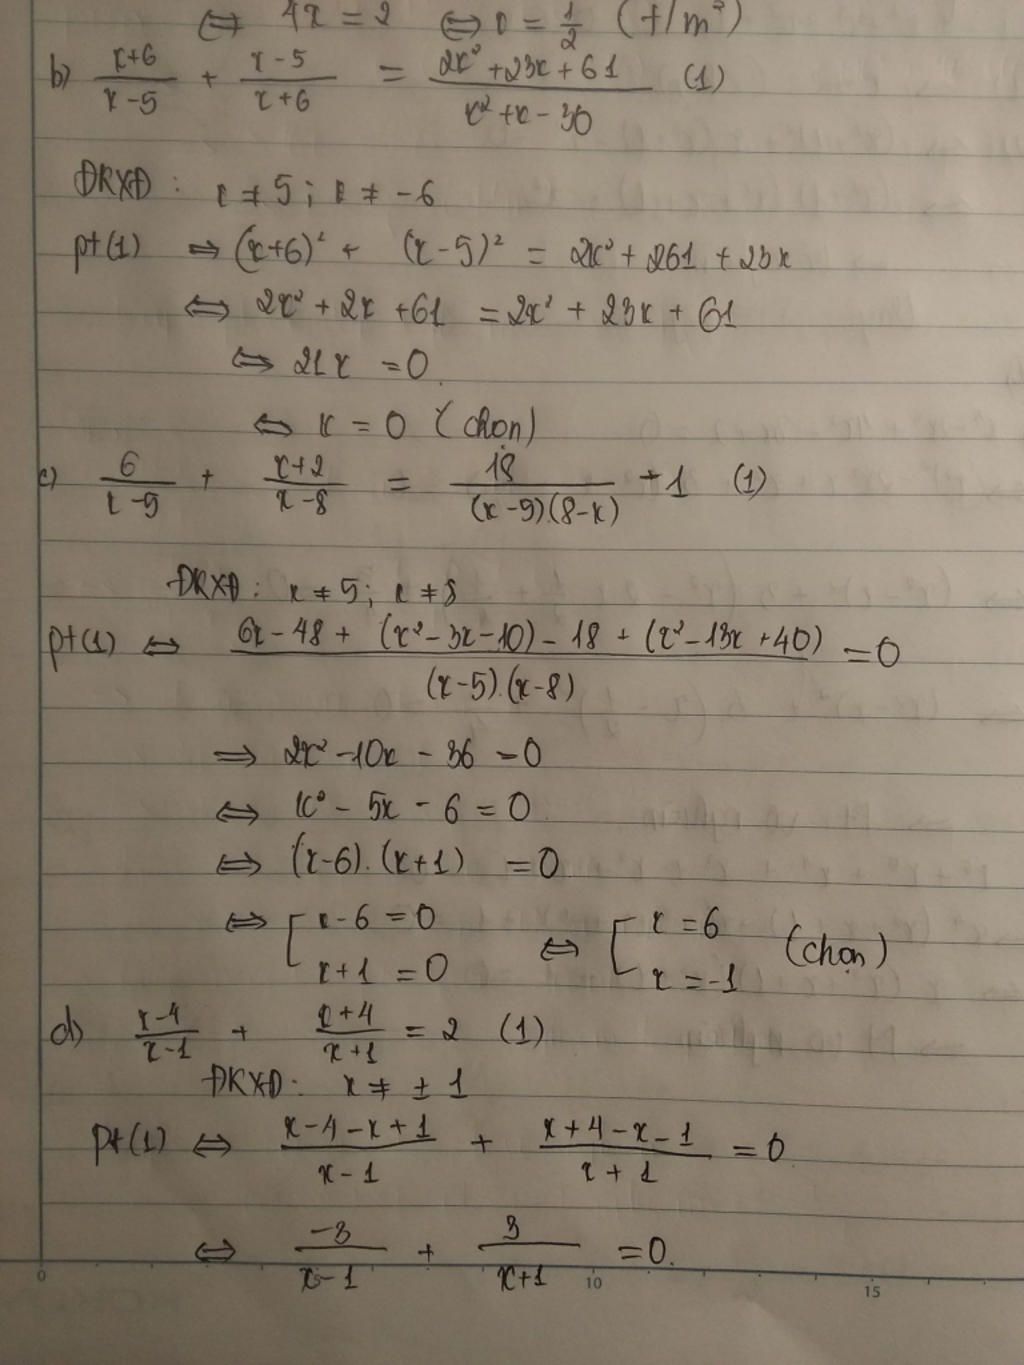 ⇔ 4x = 2 ⇔ x = 1/2 (t/m²)
b) (x+6)/(x-5) + (x-5)/(x+6) = (2x²+23x+61)/(x²+x-30) (1)
ĐKXĐ: x ≠ 5; x ≠ -6
pt(1) ⇒ (x+6)² + (x-5)² = 2x² + 261 + 23x
⇔ 2x² + 2x + 61 = 2x² + 23x + 61
⇔ 21x = 0
⇔ x = 0 (chọn)
c) 6/(x-5) + (x+2)/(x-8) = 18/((x-5).(8-x)) - 1 (1)
ĐKXĐ: x ≠ 5; x ≠ 8
pt(1) ⇔ (6x-48 + (x²-3x-10) - 18 + (x²-13x+40))/((x-5).(x-8)) = 0
⇒ 2x² - 10x - 36 = 0
⇔ x² - 5x - 6 = 0
⇔ (x-6).(x+1) = 0
⇔ [ x-6 = 0 ⇔ [ x = 6 (chọn)
x+1 = 0 x = -1
d) (x-4)/(x-1) + (x+4)/(x+1) = 2 (1)
ĐKXĐ: x ≠ ± 1
pt(1) ⇔ (x-4-x+1)/(x-1) + (x+4-x-1)/(x+1) = 0
⇔ -3/(x-1) + 3/(x+1) = 0.
0 10 15